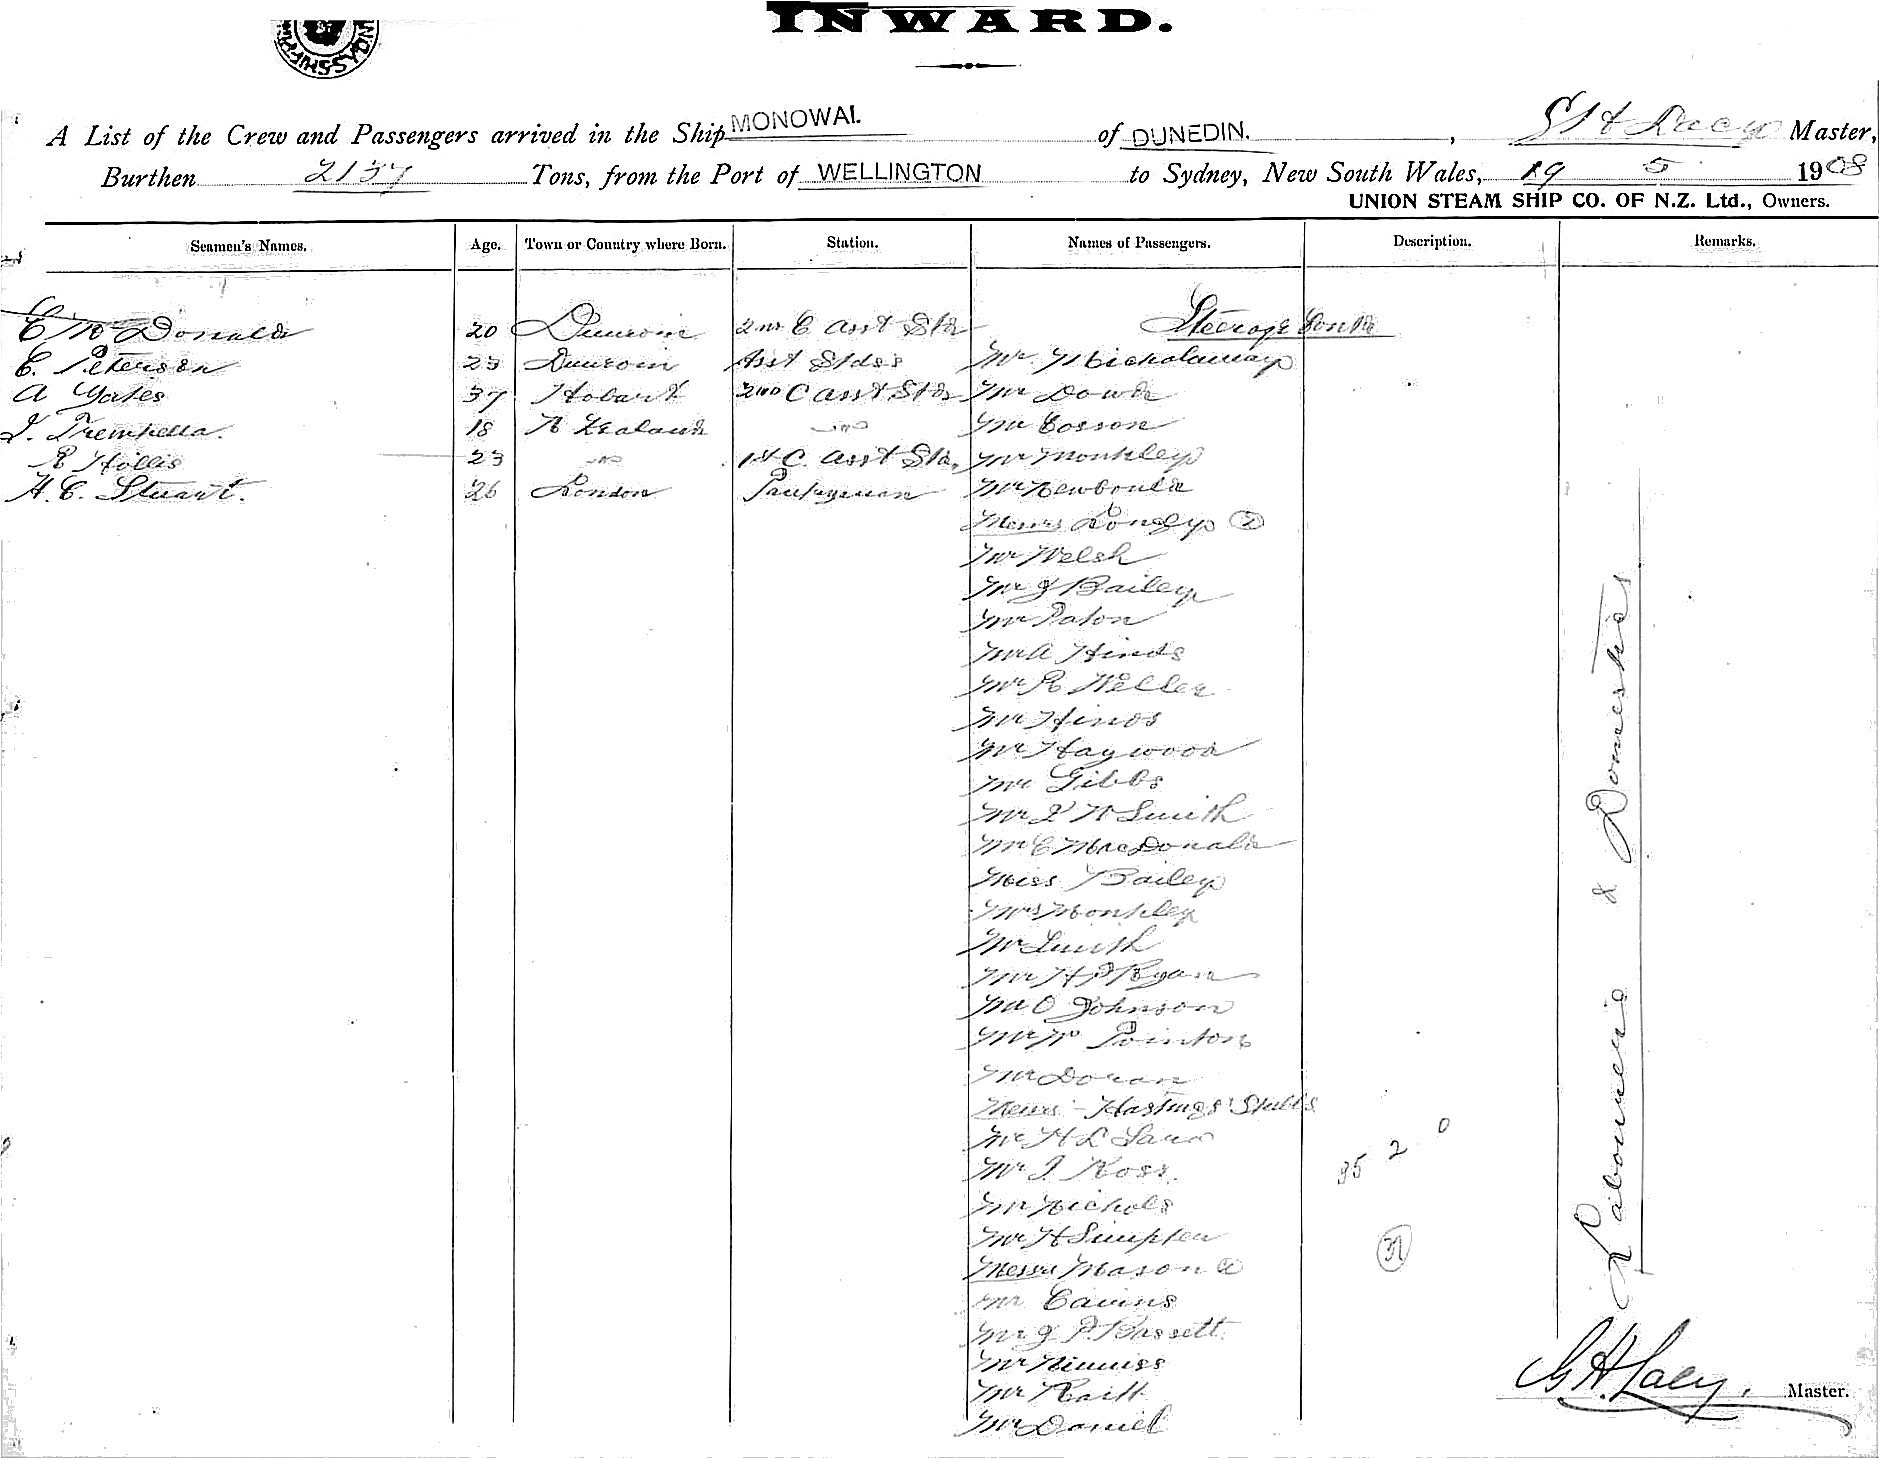 INWARD.
A List of the Crew and Passengers arrived in the Ship MONOWAI. of DUNEDIN. , G H Lacey Master,
Burthen 2137 Tons, from the Port of WELLINGTON to Sydney, New South Wales, 19 5 1908
UNION STEAM SHIP CO. OF N.Z. Ltd., Owners.
Seamen's Names. Age. Town or Country where Born. Station. Names of Passengers. Description. Remarks.
Steerage
C McDonald 20 Dunedin 2nd C Asst Std
C. Peterson 23 Dunedin Asst Stdss Mr
A Yates 37 Hobart 2nd C Asst Std Mr Dowd
J. Trembella. 18 N Zealand Mr Cosson
R Hollis 23 1st C. Asst Std. Mr Monkley
H. C. Stuart. 26 London Pantryman Mr Newbould
Messrs Longly 2
Mr Welsh
Mr J Bailey
Mr Paton
Mr A Hinds
Mr R Weller
Mr Hinds
Mr Haywood
Mr Gibbs
Mr W Smith
Mr C MacDonald
Miss Bailey
Mrs Monkley
Mr Smith
Mr H P Ryan
Mr O Johnson
Mr W Pointon
Mr Doran
Messrs Hastings Stubbs
Mr H L
Mr J. Ross.
Mr Nichols
Mr H Simpson
Messrs Mason 2
Mr Cairns
Mr J P. Bassett
Mr Ninniss
Mr Raitt
Mr Daniel
35 2 0
37
Labourers & Domestics
G H. Lacey. Master.